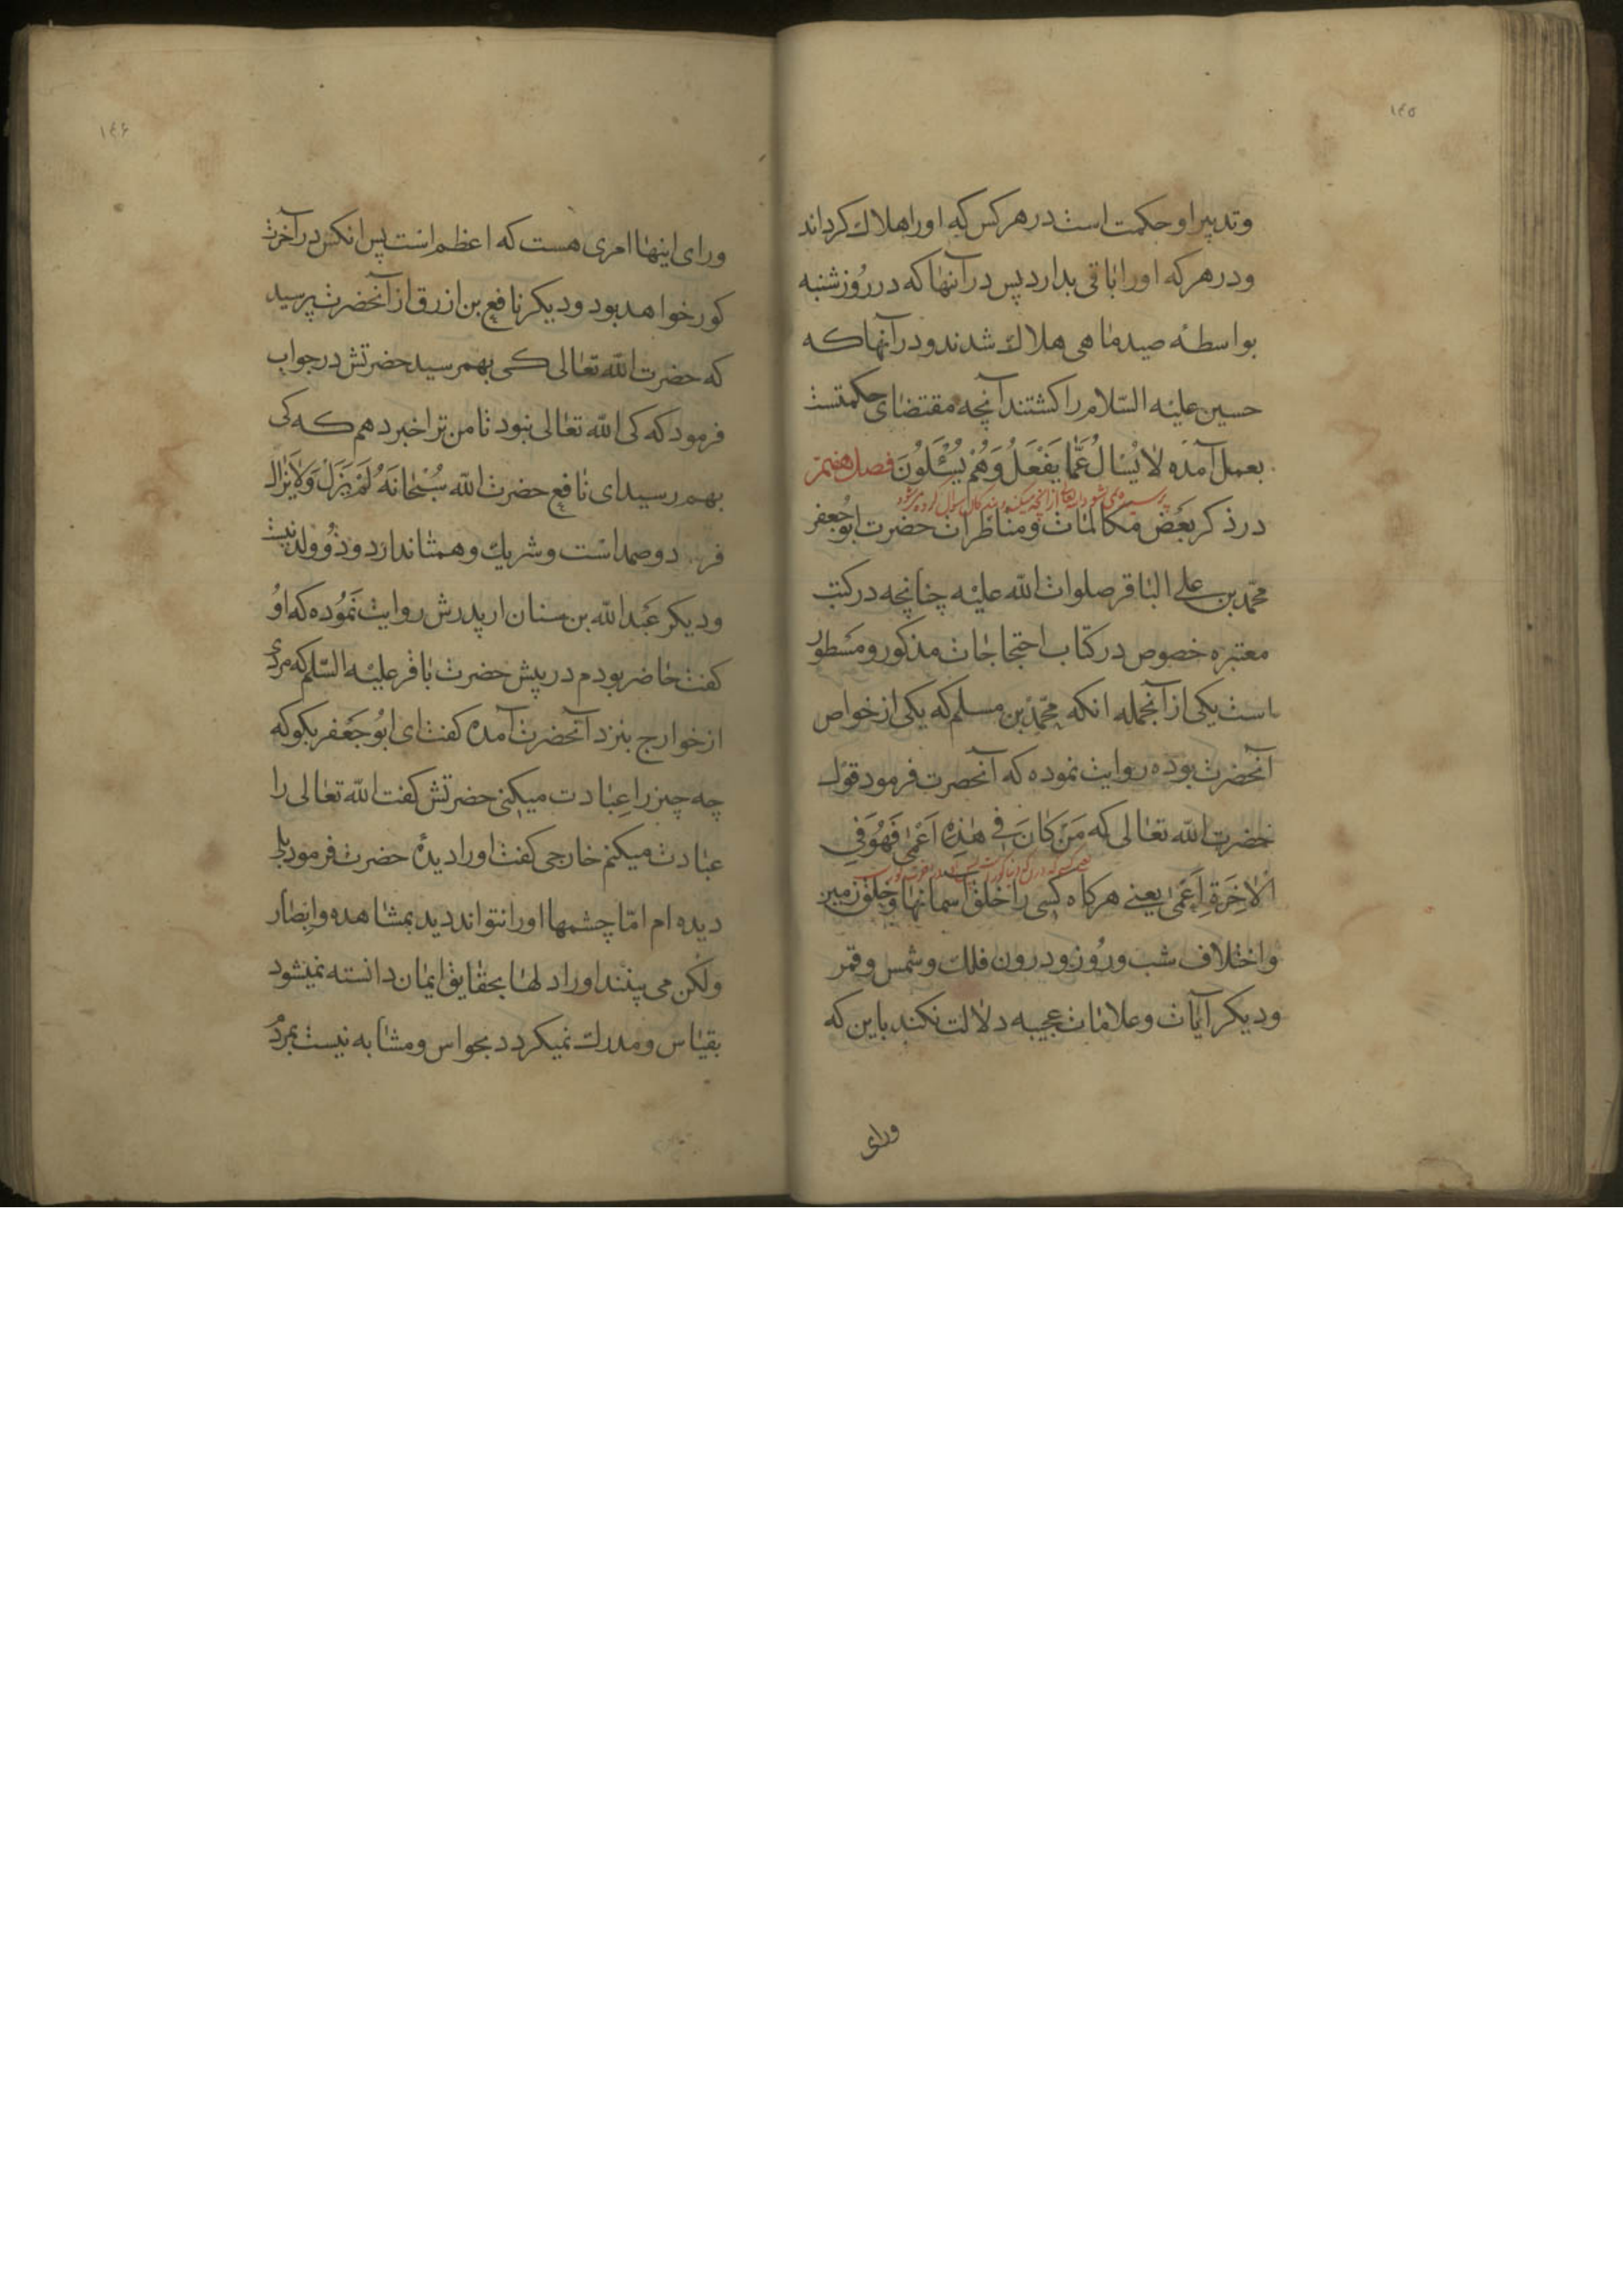 ١٤٥
وتدبیر او حکمت است در هر کس که او را هلاک کرداند
و در هر که او را باقی بدارد پس در آنها که در روز شنبه
بواسطهٔ صید ماهی هلاک شدند و در آنها که
حسین علیه السّلام را کشتند آنچه مقتضای حکمتست
بعمل آمده لَا یُسْأَلُ عَمَّا یَفْعَلُ وَهُمْ یُسْئَلُونَ فصل هفتم
در ذکر بعض مکالمات و مناظرات حضرت ابو جعفر
محمّد بن علی الباقر صلوات اللّه علیه چنانچه در کتب
معتبره خصوص در کتاب احتجاجات مذکور و مسطور
است یکی از آنجمله انکه محمّد بن مسلم که یکی از خواص
آنحضرت بوده روایت نموده که آنحضرت فرمود قول
حضرت اللّه تعالی که مَنْ کَانَ فِی هٰذِهِ اَعْمٰی فَهُوَ فِی
الْاٰخِرَةِ اَعْمٰی یعنے هرکاه کسی را خلق آسمانها و خلق زمین
و اختلاف شب و روز و درون فلک و شمس و قمر
و دیکر آیات و علامات عجیبه دلالت نکند باین که
ورای
١٤۶
ورای اینها امری هست که اعظم است پس انکس در آخرت
کور خواهد بود و دیکر نافع بن ازرق از آنحضرت پرسید
که حضرت اللّه تعالی کی بهم رسید حضرتش در جواب
فرمود که کی اللّه تعالی نبود تا من ترا خبر دهم که کی
بهم رسید ای نافع حضرت اللّه سُبْحَانَهُ لَمْ یَزَلْ وَلَا یَزَال
فرد و صمد است و شریک و همتا ندارد و ذو ولد نیست
و دیکر عبد اللّه بن سنان از پدرش روایت نموده که او
کفت حاضر بودم در پیش حضرت باقر علیه السّلم که مردی
از خوارج بنزد آنحضرت آمده کفت ای ابو جعفر بکو که
چه چیز را عبادت میکنی حضرتش کفت اللّه تعالی را
عبادت میکنم خارجی کفت او را دیدهٔ حضرت فرمود بلی
دیده ام امّا چشمها او را نتواند دید بمشاهده و ابصار
ولکن می بینند او را دلها بحقایق ایمان دانسته نمیشود
بقیاس و مدرک نمیکردد بحواس و مشابه نیست بمردم